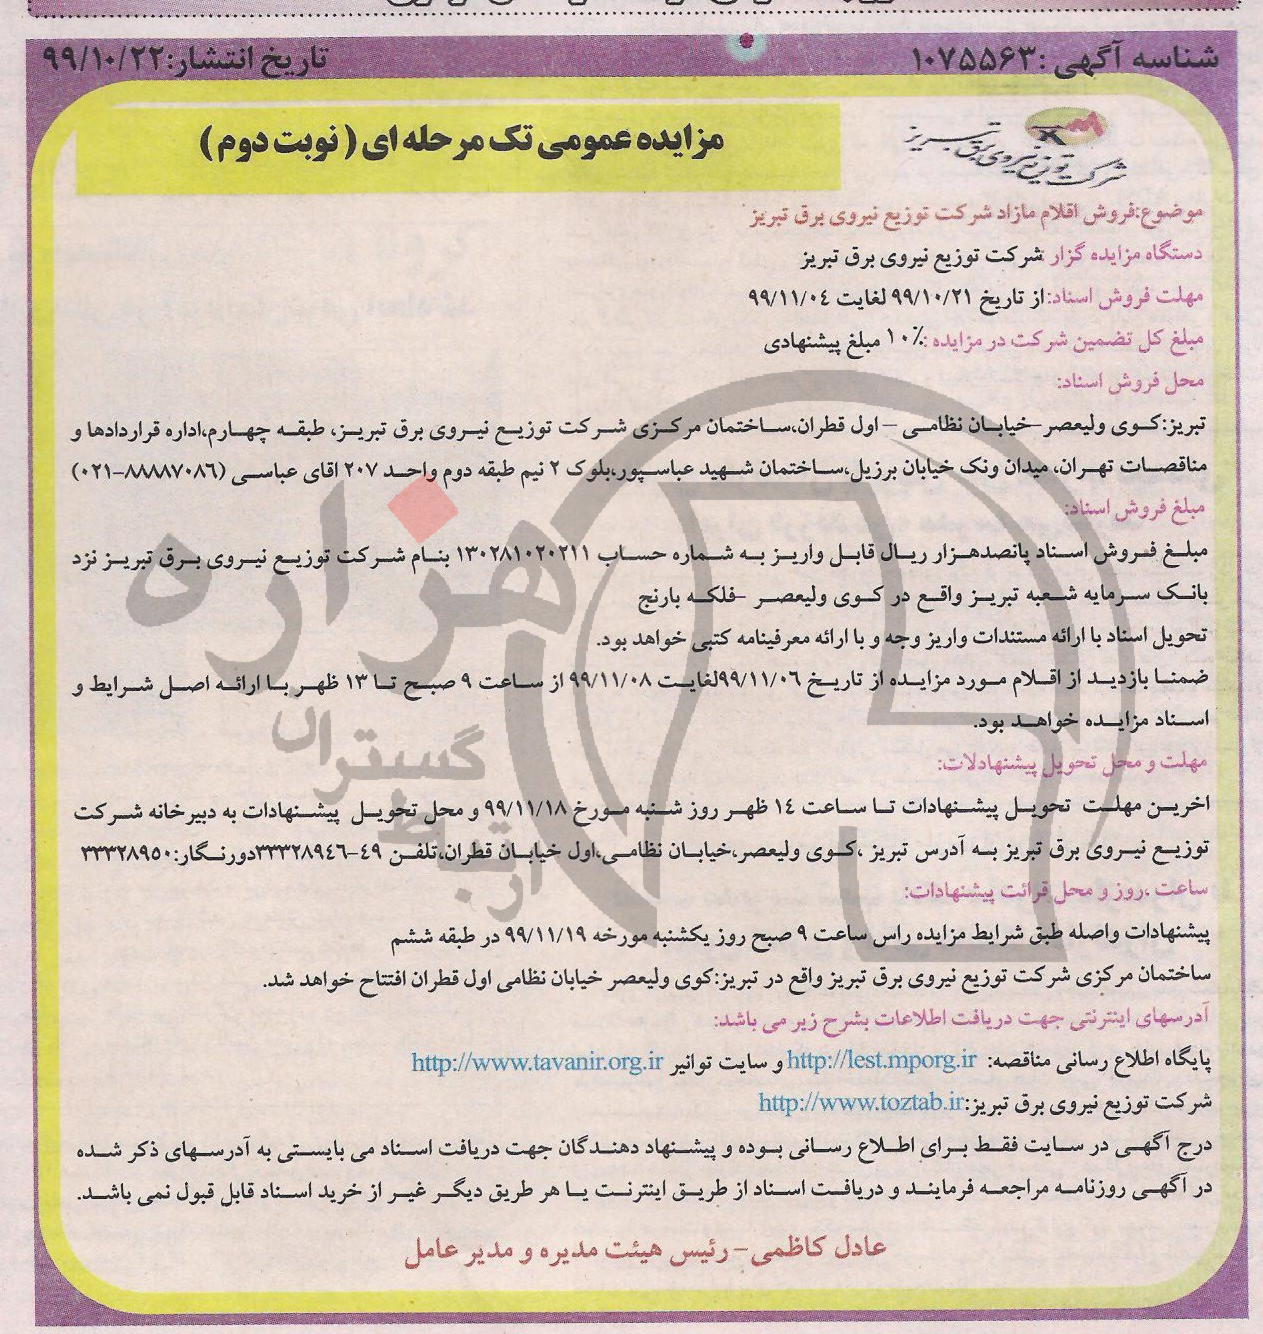 شناسه آگهی :۱۰۷۵۵۶۳
تاریخ انتشار:۹۹/۱۰/۲۲
شرکت توزیع نیروی برق تبریز
مزایده عمومی تک مرحله ای ( نوبت دوم )
موضوع:فروش اقلام مازاد شرکت توزیع نیروی برق تبریز
دستگاه مزایده گزار شرکت توزیع نیروی برق تبریز
مهلت فروش اسناد:از تاریخ ۹۹/۱۰/۲۱ لغایت ۹۹/۱۱/۰۴
مبلغ کل تضمین شرکت در مزایده :۱۰٪ مبلغ پیشنهادی
محل فروش اسناد:
تبریز:کوی ولیعصر-خیابان نظامی – اول قطران،ساختمان مرکزی شرکت توزیع نیروی برق تبریز، طبقه چهارم،اداره قراردادها و
مناقصات تهران، میدان ونک خیابان برزیل،ساختمان شهید عباسپور،بلوک ۲ نیم طبقه دوم واحد ۲۰۷ اقای عباسی (۸۸۸۸۷۰۸۶-۰۲۱)
مبلغ فروش اسناد:
مبلغ فروش اسناد پانصدهزار ریال قابل واریز به شماره حساب ۱۳۰۲۸۱۰۲۰۲۱۱ بنام شرکت توزیع نیروی برق تبریز نزد
بانک سرمایه شعبه تبریز واقع در کوی ولیعصر -فلکه بارنج
تحویل اسناد با ارائه مستندات واریز وجه و با ارائه معرفینامه کتبی خواهد بود.
ضمنا بازدید از اقلام مورد مزایده از تاریخ ۹۹/۱۱/۰۶لغایت ۹۹/۱۱/۰۸ از ساعت ۹ صبح تا ۱۳ ظهر با ارائه اصل شرایط و
اسناد مزایده خواهد بود.
مهلت و محل تحویل پیشنهادلات:
اخرین مهلت تحویل پیشنهادات تا ساعت ۱۴ ظهر روز شنبه مورخ ۹۹/۱۱/۱۸ و محل تحویل پیشنهادات به دبیرخانه شرکت
توزیع نیروی برق تبریز به آدرس تبریز ،کوی ولیعصر،خیابان نظامی،اول خیابان قطران،تلفن ۴۹-۳۳۳۲۸۹۴۶دورنگار:۳۳۳۲۸۹۵۰
ساعت ،روز و محل قرائت پیشنهادات:
پیشنهادات واصله طبق شرایط مزایده راس ساعت ۹ صبح روز یکشنبه مورخه ۹۹/۱۱/۱۹ در طبقه ششم
ساختمان مرکزی شرکت توزیع نیروی برق تبریز واقع در تبریز:کوی ولیعصر خیابان نظامی اول قطران افتتاح خواهد شد.
آدرسهای اینترنتی جهت دریافت اطلاعات بشرح زیر می باشد:
پایگاه اطلاع رسانی مناقصه: http://lest.mporg.ir و سایت توانیر http://www.tavanir.org.ir
شرکت توزیع نیروی برق تبریز:http://www.toztab.ir
درج آگهی در سایت فقط برای اطلاع رسانی بوده و پیشنهاد دهندگان جهت دریافت اسناد می بایستی به آدرسهای ذکر شده
در آگهی روزنامه مراجعه فرمایند و دریافت اسناد از طریق اینترنت یا هر طریق دیگر غیر از خرید اسناد قابل قبول نمی باشد.
عادل کاظمی- رئیس هیئت مدیره و مدیر عامل
هزاره
گستران
ارتباط